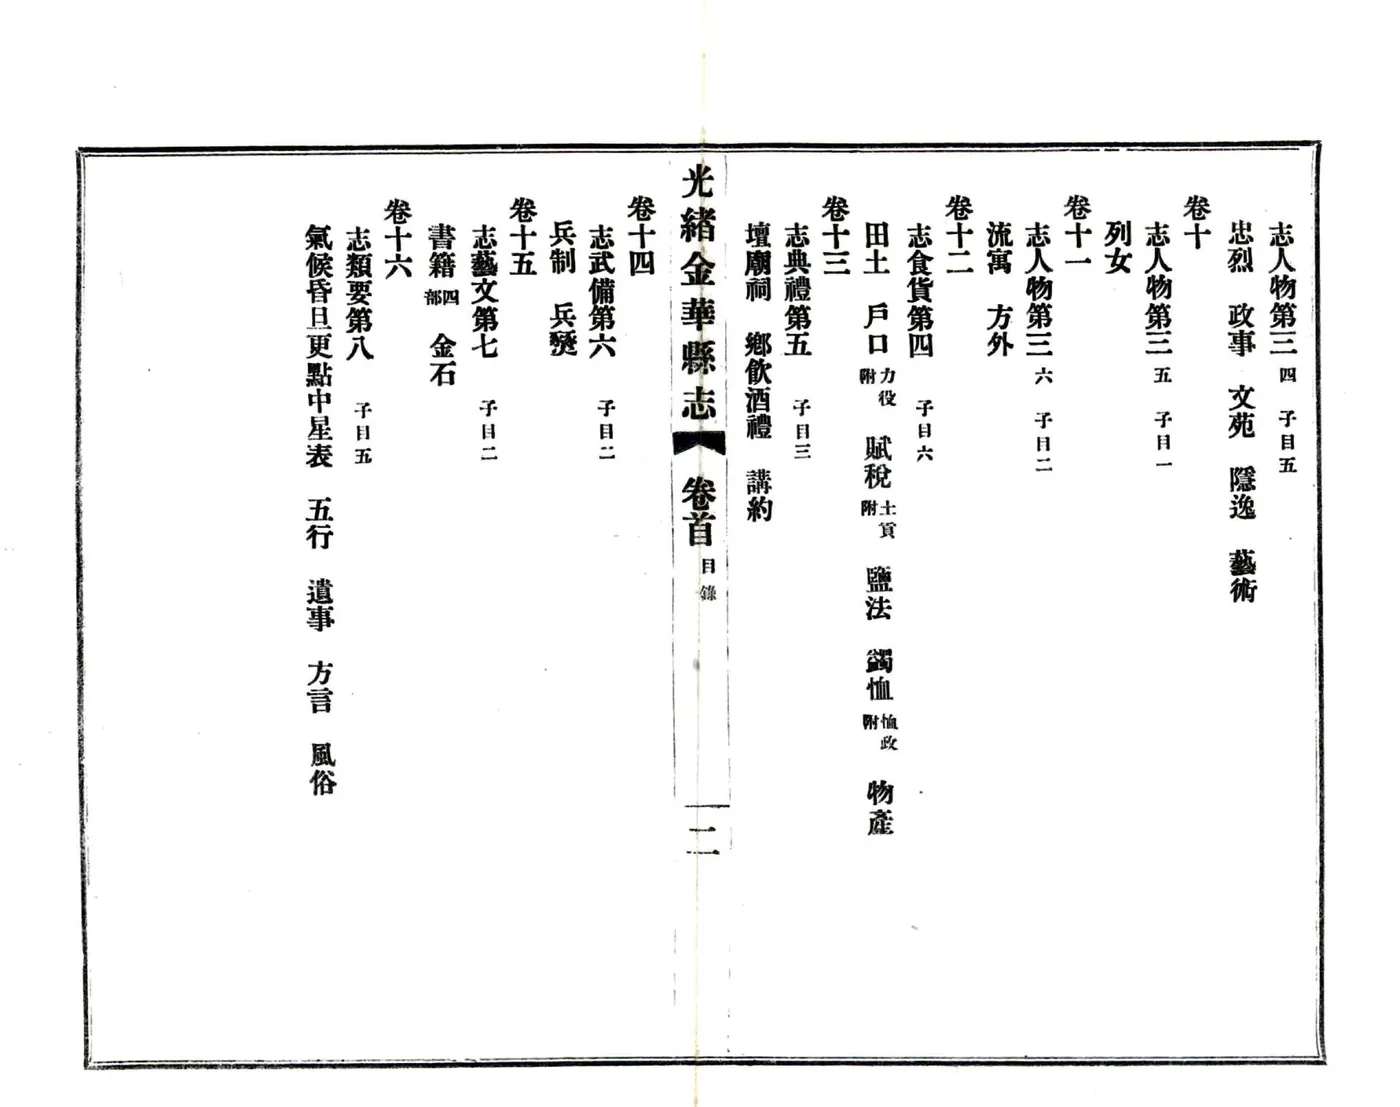 志人物第三 四 子目五
忠烈 政事 文苑 隱逸 藝術
卷十
志人物第三 五 子目一
列女
卷十一
志人物第三 六 子目二
流寓 方外
卷十二
志食貨第四 子目六
田土 戶口 力役附 賦稅 土貢附 鹽法 蠲恤 恤政附 物產
卷十三
志典禮第五 子目三
壇廟祠 鄉飲酒禮 講約
光緒金華縣志 卷首 目錄 二
卷十四
志武備第六 子目二
兵制 兵燹
卷十五
志藝文第七 子目二
書籍 四部 金石
卷十六
志類要第八 子目五
氣候昏旦更點中星表 五行 遺事 方言 風俗